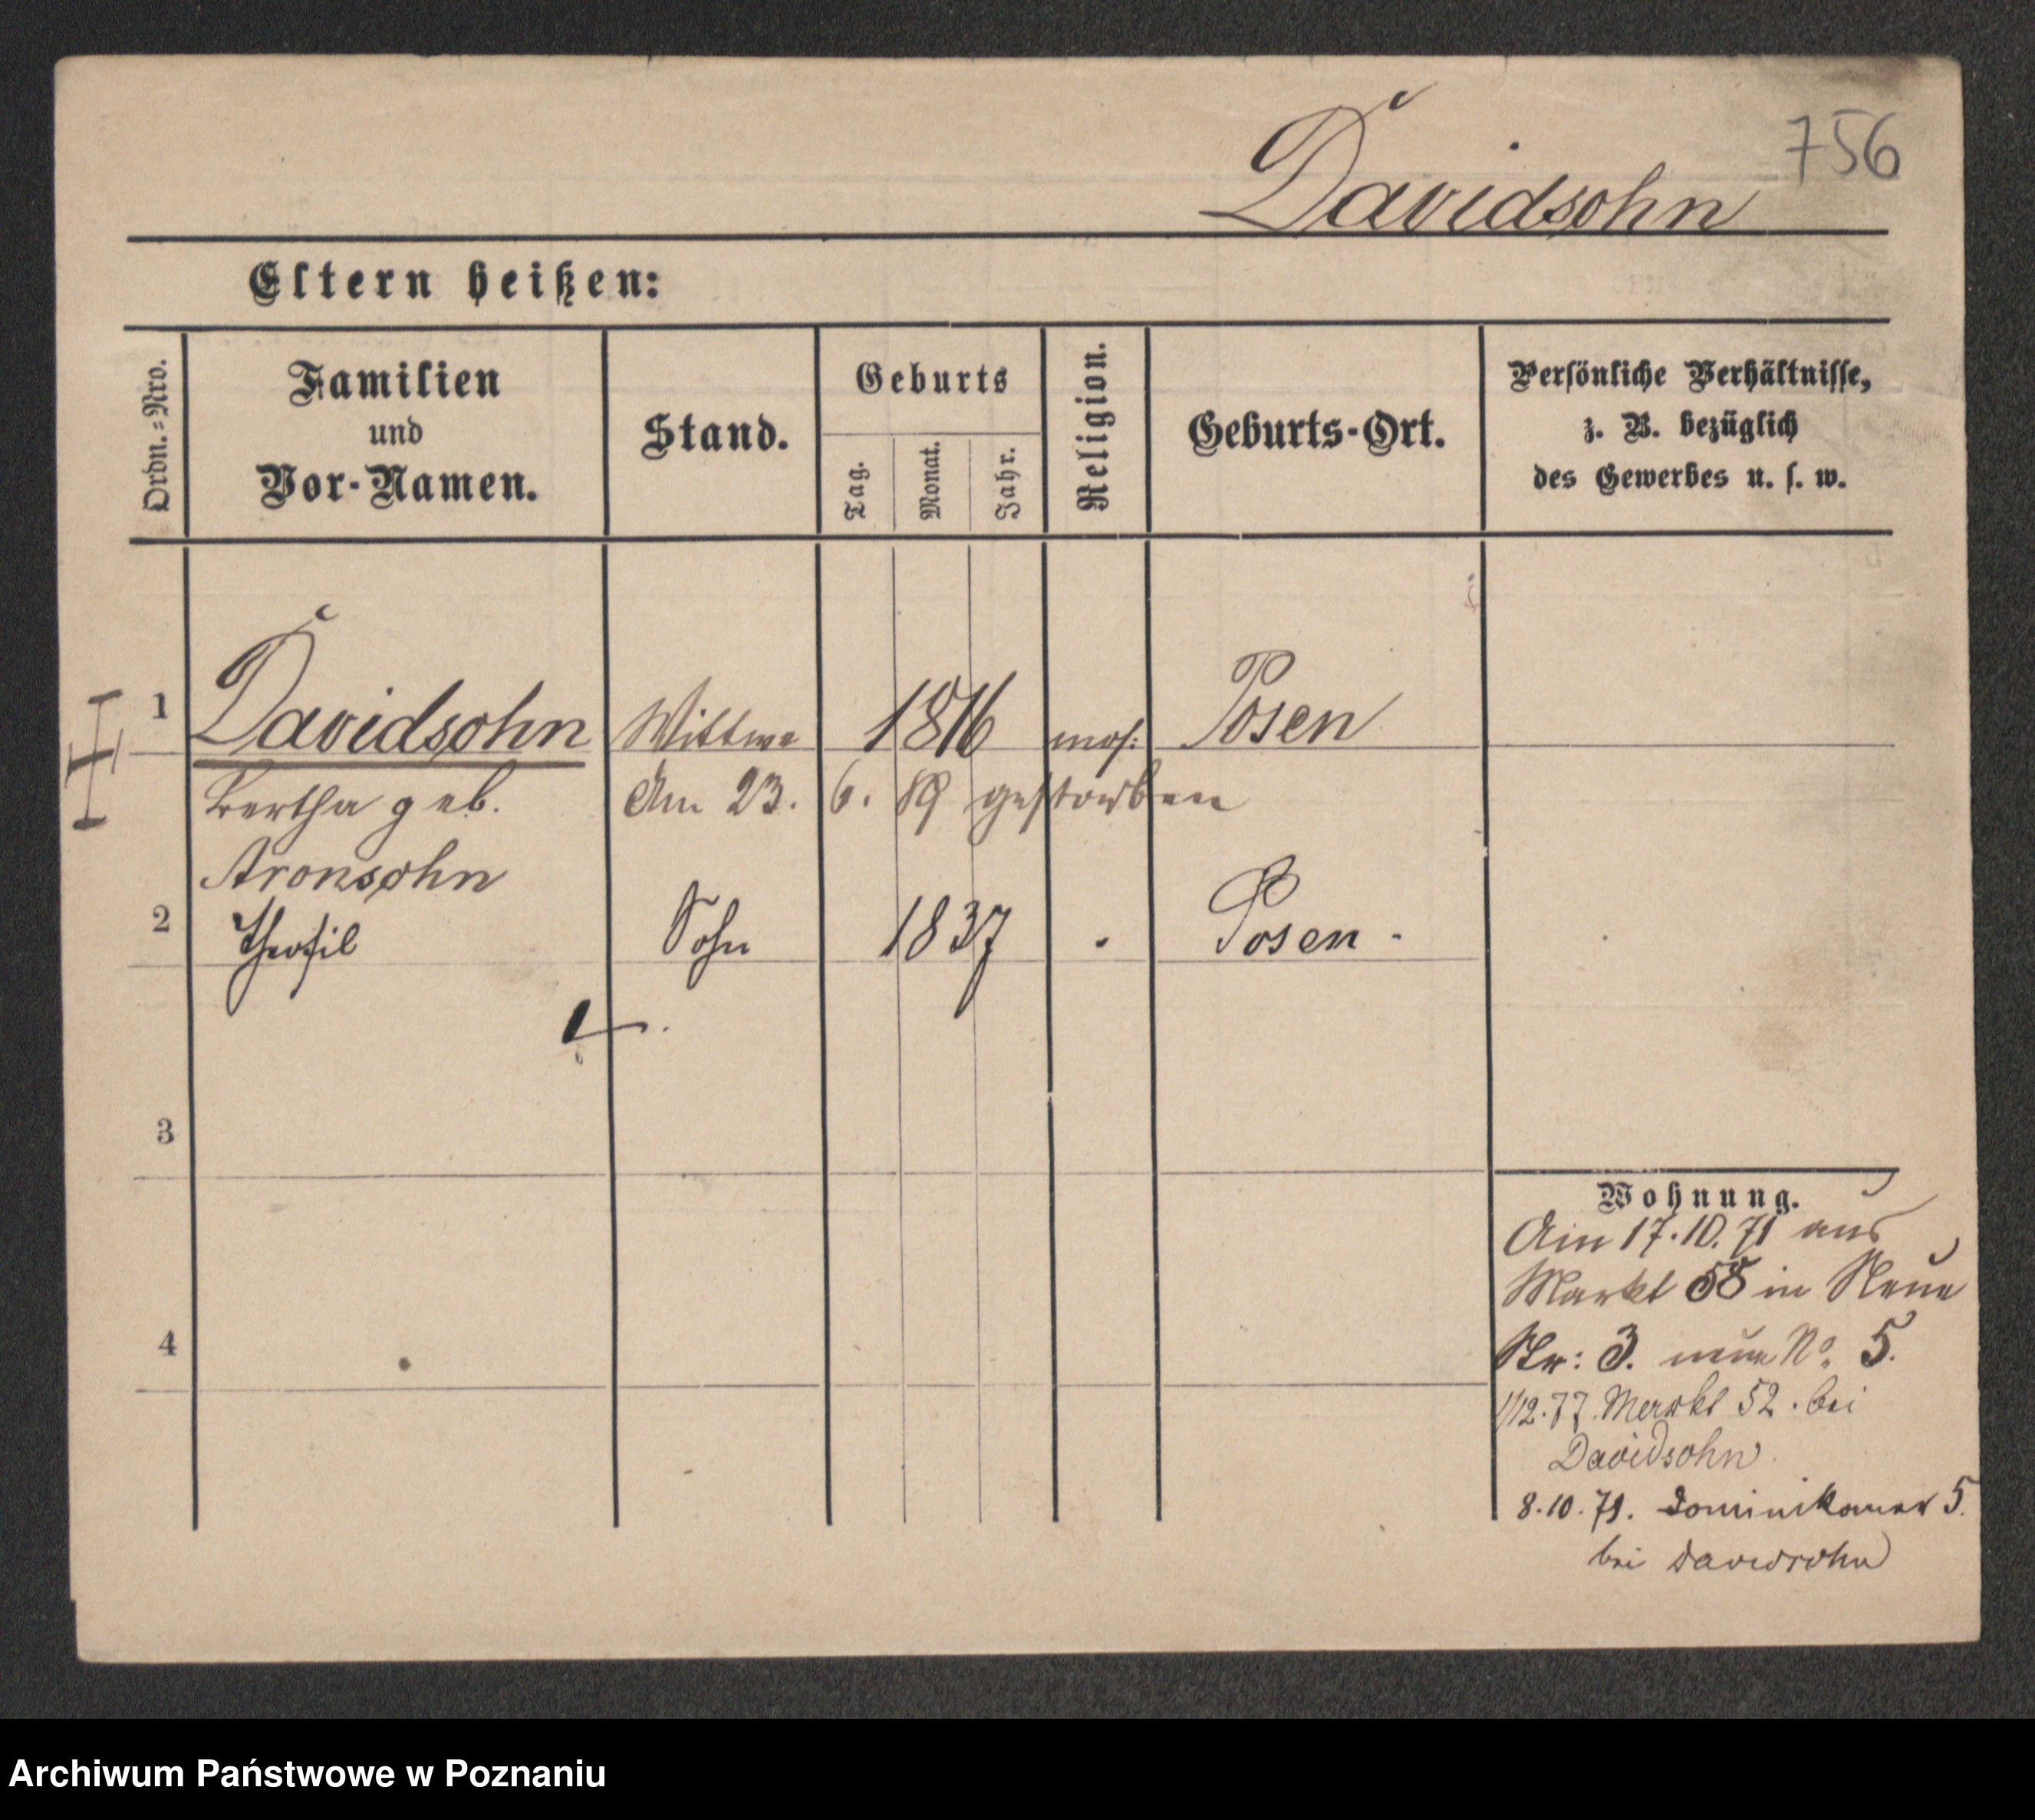 756
Davidsohn
Eltern heißen:
Ordn.=Nro.
Familien
und
Vor-Namen.
Stand.
Geburts
Tag.
Monat.
Jahr.
Religion.
Geburts-Ort.
Persönliche Verhältnisse,
z. B. bezüglich
des Gewerbes u. s. w.
1 Davidsohn Wittwe 1816 mos: Posen
Bertha geb. Am 23. 6. 89 gestorben
Aronsohn
2 Theofil Sohn 1837 Posen
3
4
Wohnung.
Am 17.10.71 aus
Markt 58 in Neue
Str: 3. neue No. 5.
1/12.77. Markt 52. bei
Davidsohn
8.10.79. Dominikaner 5.
bei Davidsohn
Archiwum Państwowe w Poznaniu